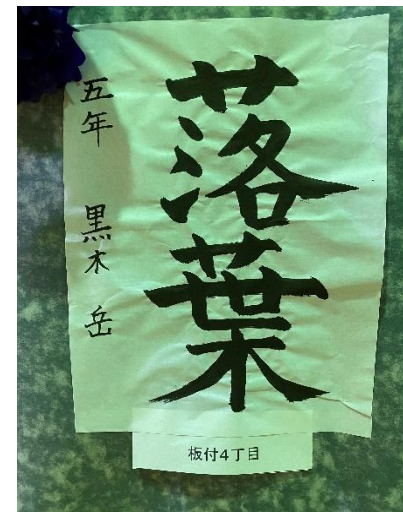 落葉
五年 黒木 岳
板付4丁目